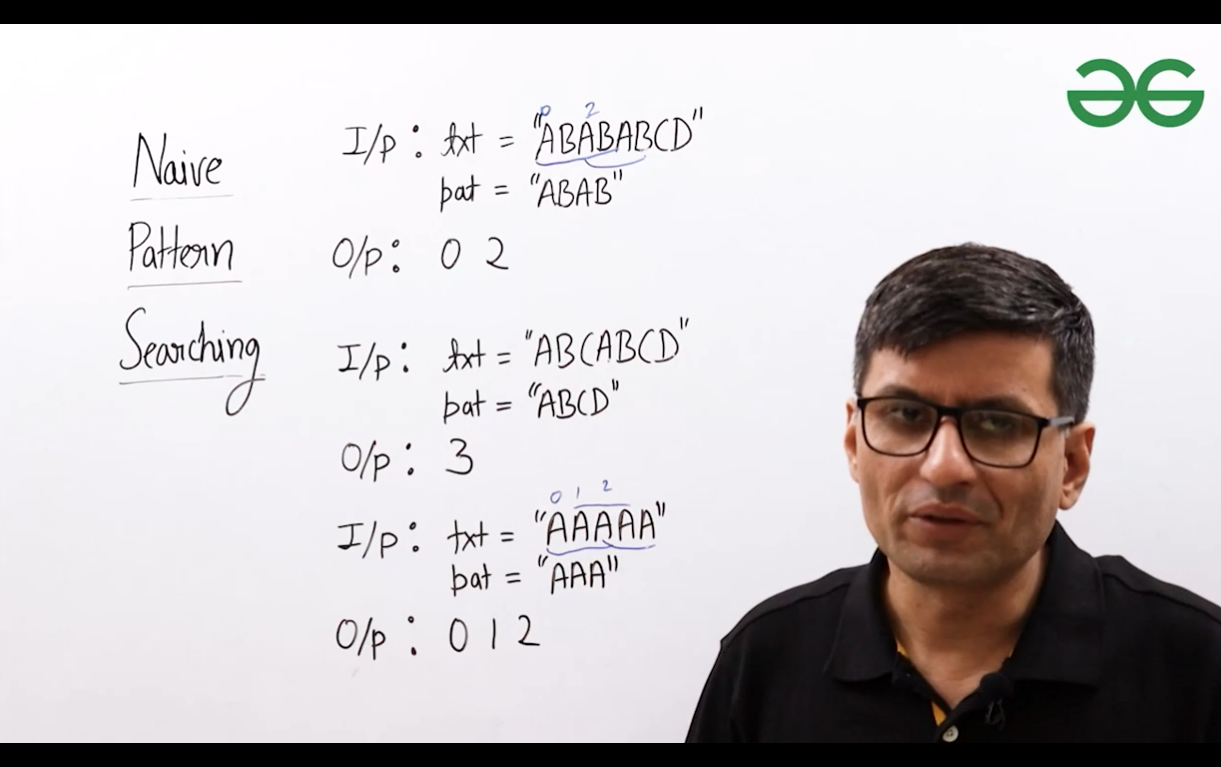 Naive
Pattern
Searching
I/p : txt = "ABABABCD"
0 2
pat = "ABAB"
O/p : 0 2
I/p : txt = "ABCABCD"
pat = "ABCD"
O/p : 3
0 1 2
I/p : txt = "AAAAA"
pat = "AAA"
O/p : 0 1 2